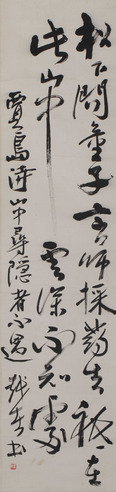 松下問童子言师採药去祇在
此山中
雲深不知處
賈島詩山中尋隱者不遇